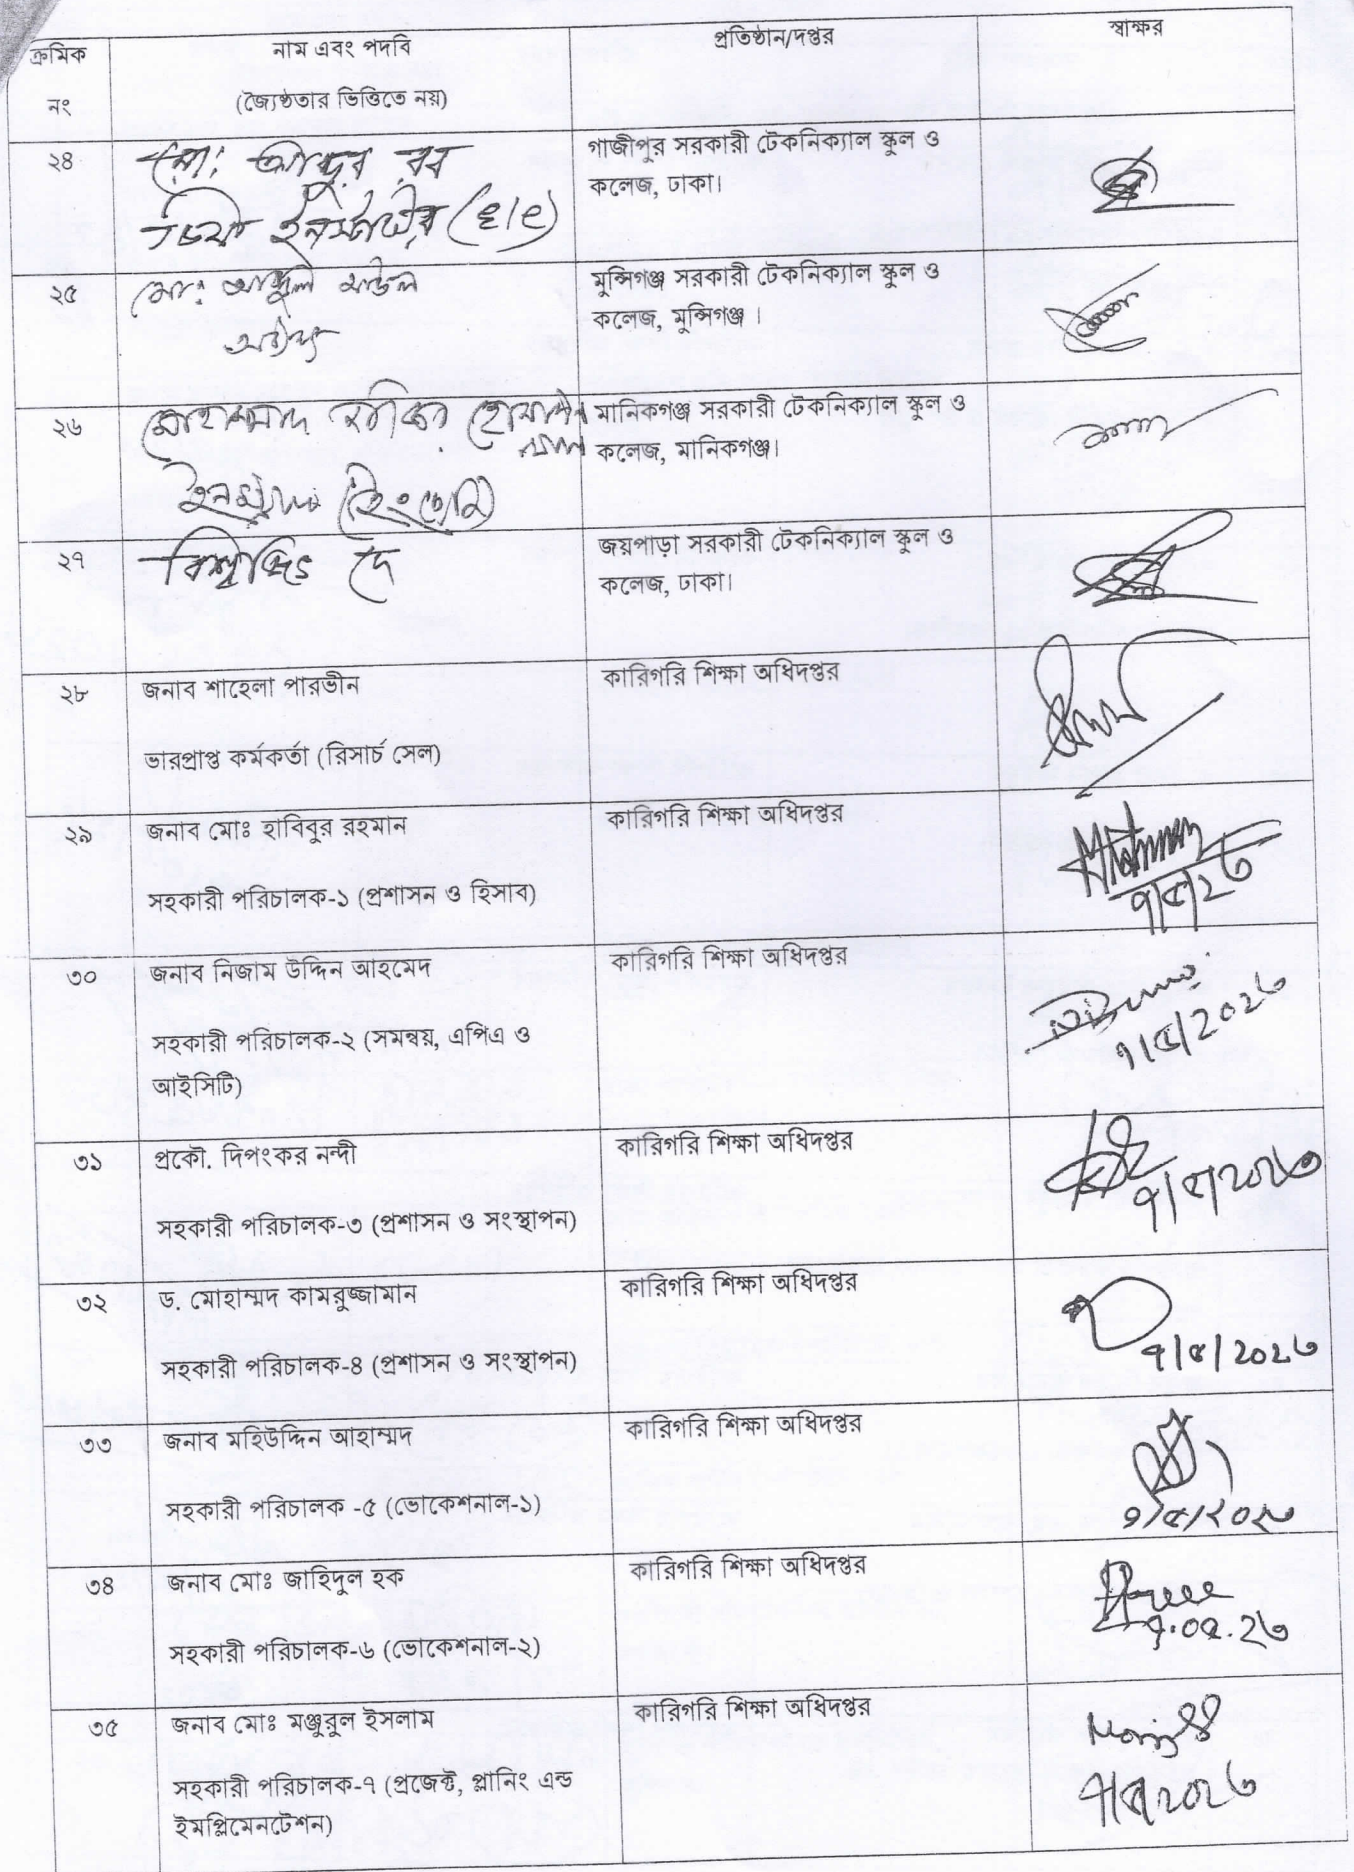 ক্রমিক
নং
নাম এবং পদবি
(জ্যৈষ্ঠতার ভিত্তিতে নয়)
প্রতিষ্ঠান/দপ্তর
স্বাক্ষর
২৪
মো: আব্দুর রব
চিফ ইনস্ট্রাক্টর
গাজীপুর সরকারী টেকনিক্যাল স্কুল ও
কলেজ, ঢাকা।
২৫
মো: আব্দুল
অধ্যক্ষ
মুন্সিগঞ্জ সরকারী টেকনিক্যাল স্কুল ও
কলেজ, মুন্সিগঞ্জ ।
২৬
মোহাম্মাদ
মানিকগঞ্জ সরকারী টেকনিক্যাল স্কুল ও
কলেজ, মানিকগঞ্জ।
২৭
বিশ্বজিৎ দে
জয়পাড়া সরকারী টেকনিক্যাল স্কুল ও
কলেজ, ঢাকা।
২৮
জনাব শাহেলা পারভীন
ভারপ্রাপ্ত কর্মকর্তা (রিসার্চ সেল)
কারিগরি শিক্ষা অধিদপ্তর
২৯
জনাব মোঃ হাবিবুর রহমান
সহকারী পরিচালক-১ (প্রশাসন ও হিসাব)
কারিগরি শিক্ষা অধিদপ্তর
৭/৫/২৩
৩০
জনাব নিজাম উদ্দিন আহমেদ
সহকারী পরিচালক-২ (সমন্বয়, এপিএ ও
আইসিটি)
কারিগরি শিক্ষা অধিদপ্তর
৭/৫/২০২৩
৩১
প্রকৌ. দিপংকর নন্দী
সহকারী পরিচালক-৩ (প্রশাসন ও সংস্থাপন)
কারিগরি শিক্ষা অধিদপ্তর
৭/৫/২০২৩
৩২
ড. মোহাম্মদ কামরুজ্জামান
সহকারী পরিচালক-৪ (প্রশাসন ও সংস্থাপন)
কারিগরি শিক্ষা অধিদপ্তর
৭/৫/২০২৩
৩৩
জনাব মহিউদ্দিন আহাম্মদ
সহকারী পরিচালক -৫ (ভোকেশনাল-১)
কারিগরি শিক্ষা অধিদপ্তর
৭/৫/২০২৩
৩৪
জনাব মোঃ জাহিদুল হক
সহকারী পরিচালক-৬ (ভোকেশনাল-২)
কারিগরি শিক্ষা অধিদপ্তর
৭.০৫.২৩
৩৫
জনাব মোঃ মঞ্জুরুল ইসলাম
সহকারী পরিচালক-৭ (প্রজেক্ট, প্লানিং এন্ড
ইমপ্লিমেনটেশন)
কারিগরি শিক্ষা অধিদপ্তর
৭/৫/২০২৩